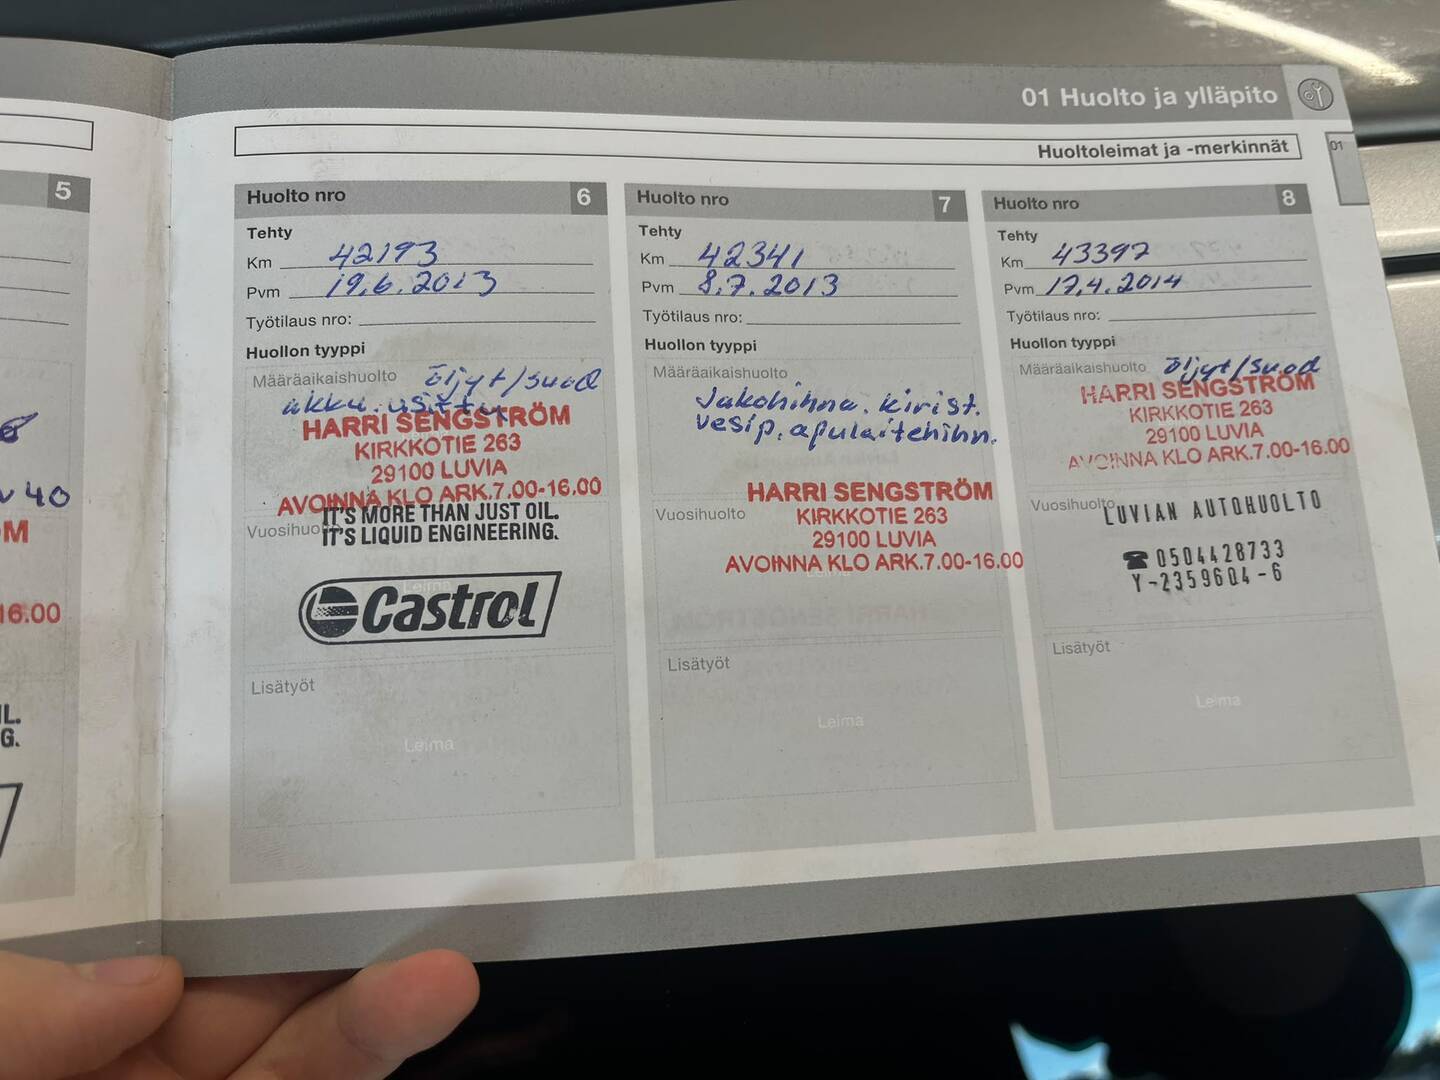 01 Huolto ja ylläpito
Huoltoleimat ja -merkinnät
01
5
v 40
M
16.00
IL.
G.
Huolto nro 6
Tehty
Km 42193
Pvm 19.6.2013
Työtilaus nro:
Huollon tyyppi
Määräaikaishuolto öljyt/suod
akku.
HARRI SENGSTRÖM
KIRKKOTIE 263
29100 LUVIA
AVOINNA KLO ARK.7.00-16.00
IT'S MORE THAN JUST OIL.
Vuosihuolto
IT'S LIQUID ENGINEERING.
Leima
Castrol
Lisätyöt
Leima
Huolto nro 7
Tehty
Km 42341
Pvm 8.7.2013
Työtilaus nro:
Huollon tyyppi
Määräaikaishuolto
Jakohihna. kirist.
vesip. apulaitehihn.
HARRI SENGSTRÖM
Vuosihuolto
KIRKKOTIE 263
29100 LUVIA
AVOINNA KLO ARK.7.00-16.00
Leima
Lisätyöt
Leima
Huolto nro 8
Tehty
Km 43397
Pvm 17.4.2014
Työtilaus nro:
Huollon tyyppi
Määräaikaishuolto öljyt/suod
HARRI SENGSTRÖM
KIRKKOTIE 263
29100 LUVIA
AVOINNA KLO ARK.7.00-16.00
Vuosihuolto
LUVIAN AUTOHUOLTO
☎ 0504428733
Y-2359604-6
Lisätyöt
Leima